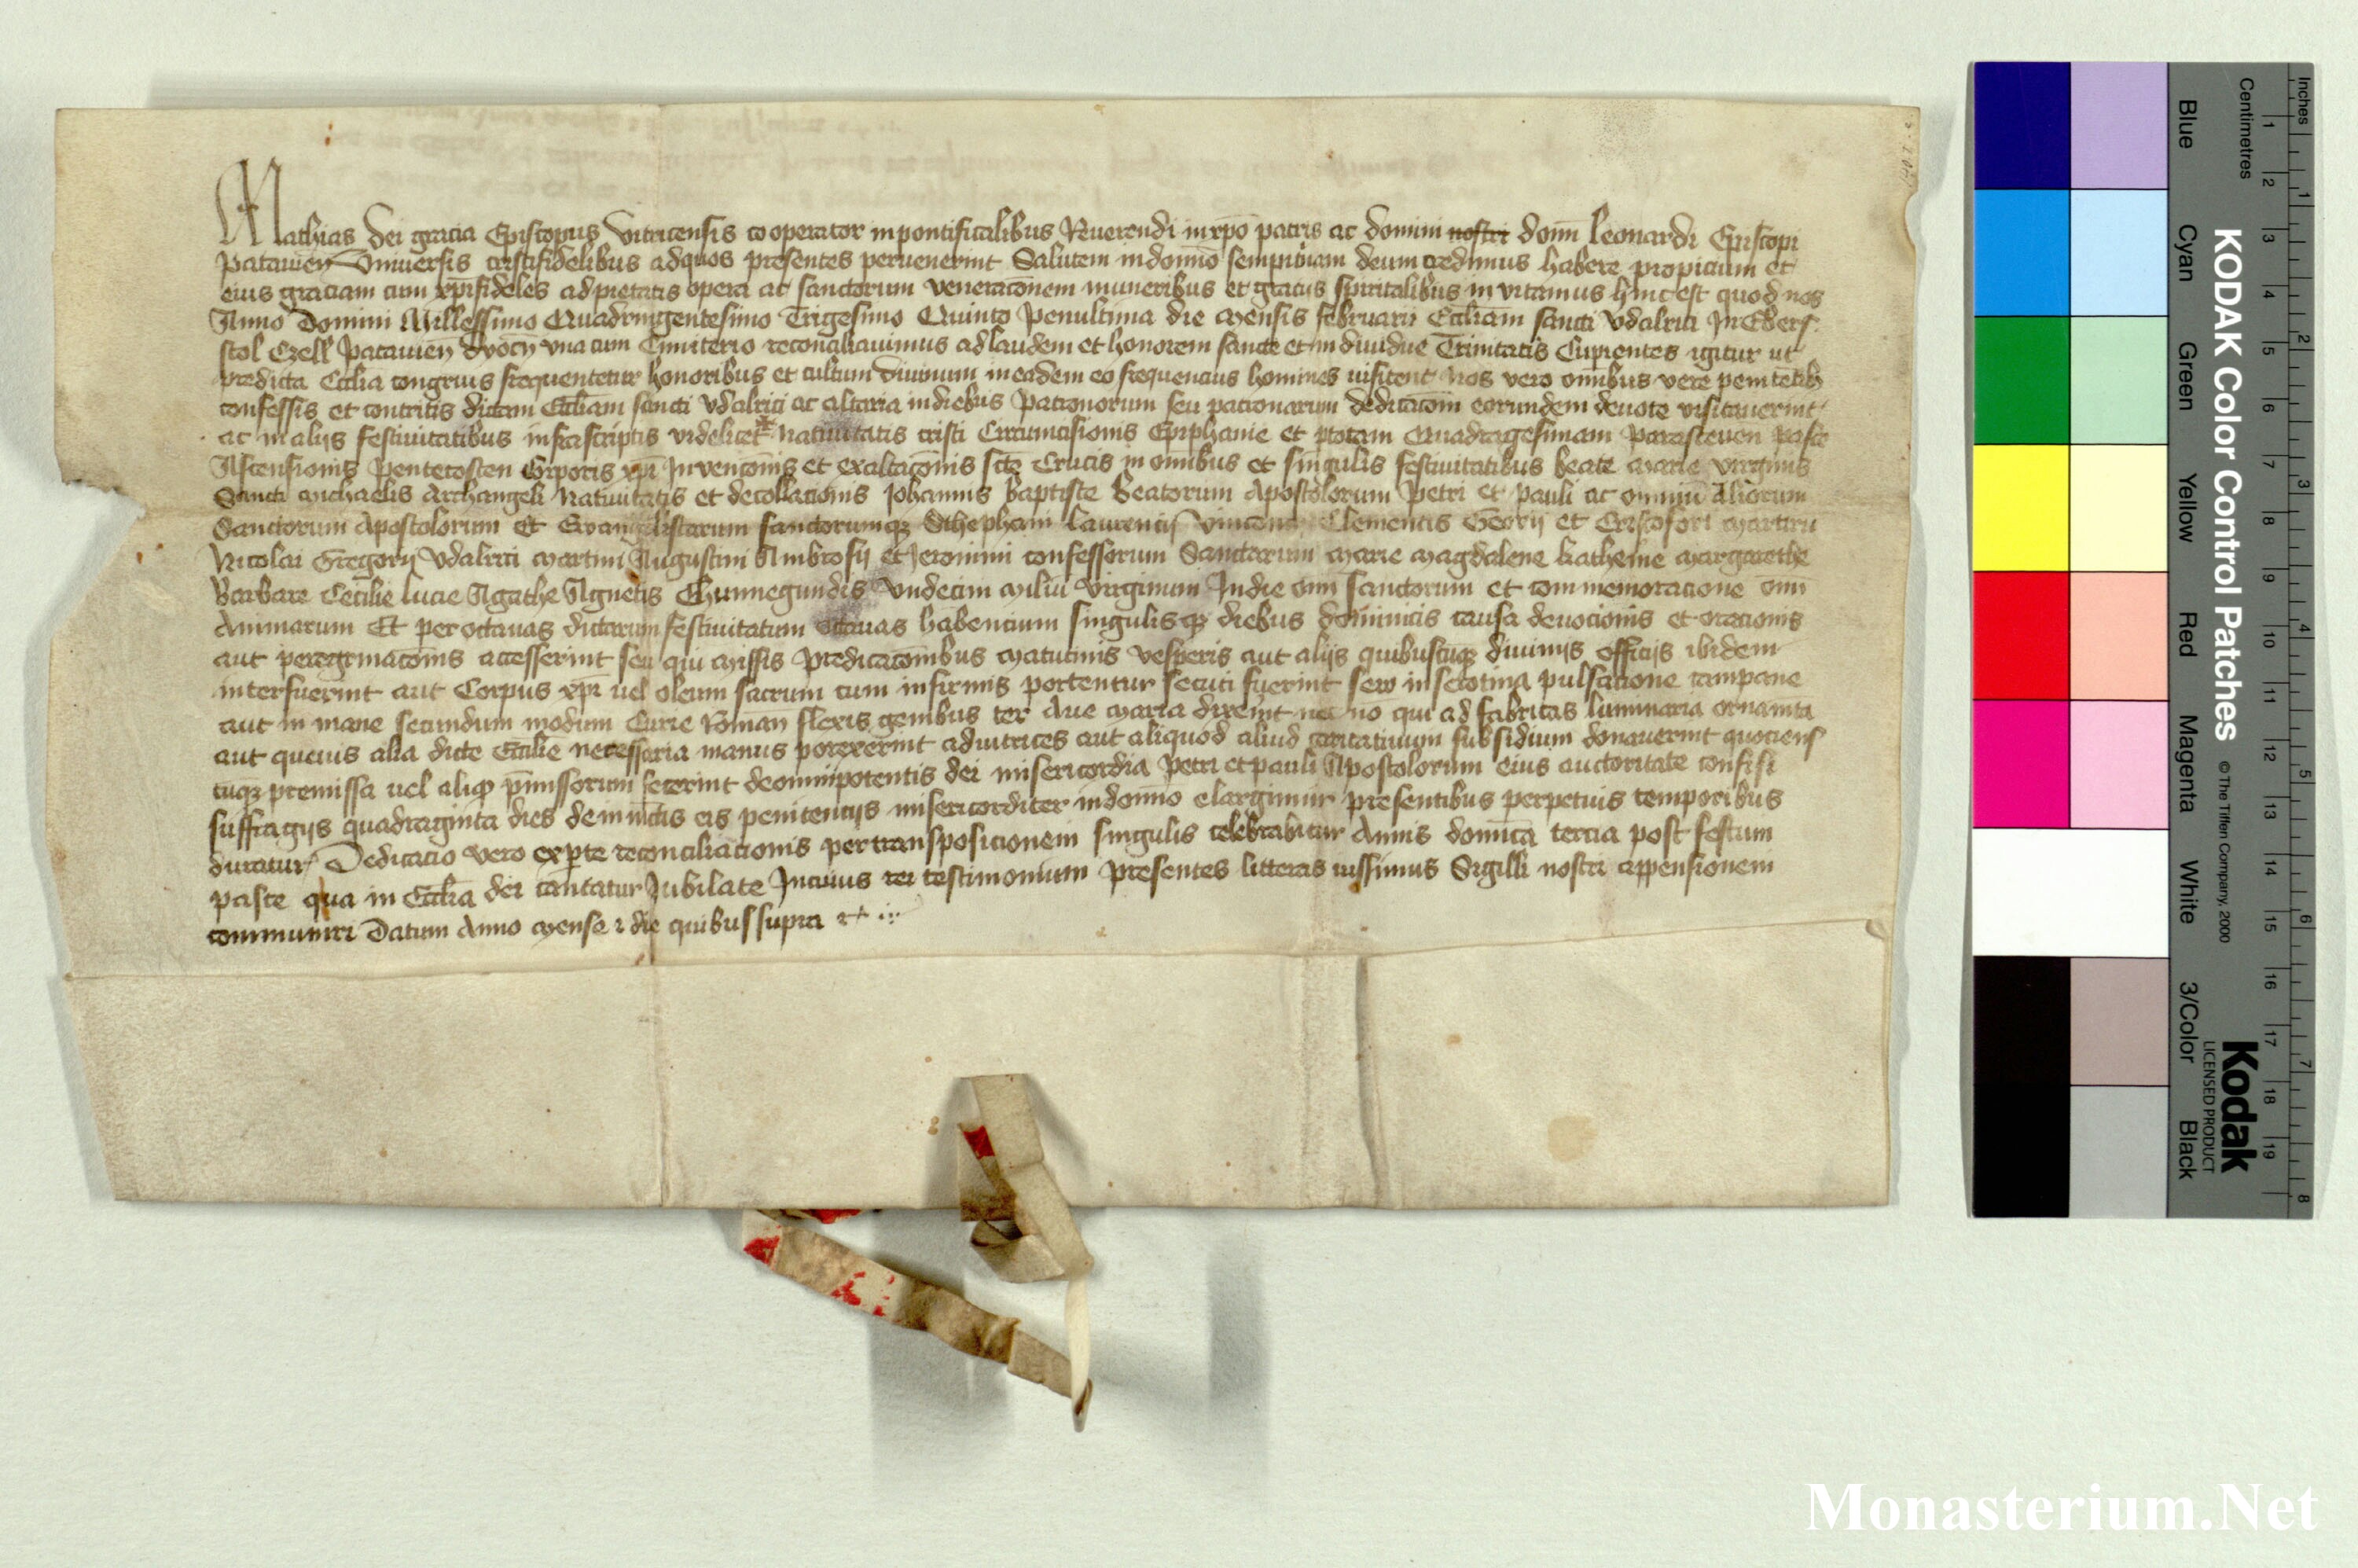 Mathias dei gracia Episcopus Victricensis cooperator in pontificalibus Reuerendi in xpo patris ac domini nostri domi Leonardi Episcopi
Patauien Vniuersis cristifidelibus ad quos presentes peruenerint Salutem in domino sempiternam deum credimus habere propicium et
eius graciam cum xpifideles ad pietatis opera ac sanctorum veneraconem muneribus et gracijs spiritalibus invitamus hinc est quod nos
Anno Domini Millessimo Quadringentesimo Trigesimo Quinto Penultima die mensis februarij Eccliam sancti Vdalrici In Ebers
stal Czell Patauien dyocn vna cum Cimiterio reconciliauimus ad laudem et honorem sancte et indiuidue Trinitatis Cupientes igitur ut
predicta Ecclia congruis frequentetur honoribus et cultum diuinum in eadem eo frequencius homines uisitent Nos vero omibus vere penitetib
confessis et contritis dictam Eccliam sancti Vdalrici ac altaria in diebus patronorum seu patronarum dedicacom eorundem deuote visitauerint
ac in alijs festiuitatibus infrascriptis videlicet Natiuitatis cristi Circumcisionis Epiphanie et ptotam Quadragesimam parasceuen pasce
Ascensionis Pentecosten Corporis xpi Invenconis et exaltaconis scte Crucis in omibus et singulis festiuitatibus beate marie virginis
Sancti michaelis Archangeli Natiuitatis et decollacionis Johannis baptiste Beatorum Apostolorum Petri et pauli ac omniu aliorum
Sanctorum Apostolorum et Evangelistarum sanctorumq Sthephani Laurencij Vincenc Clementis Georij et Cristofori martiru
Nicolai Gregorij Vdalrici martini Augustini Ambrosij et Jeronimi confessorum Sanctarum marie magdalene katherine margarethe
Barbare Cecilie Lucie Agathe Agnetis Chunnegundis Vndecim miliu virginum In die omi sanctorum et commemoracione omi
Animarum Et per octauas dictarum festiuitatum octauas habencium singulisq diebus dominicis causa deuocionis et oracionis
aut peregrinaconis accesserint seu qui missis predicaconibus matutinis vesperis aut alijs quibuscuq diuinis officijs ibidem
interfuerint aut Corpus xpi uel oleum sacrum cum infirmis portentur secuti fuerint sew in serotina pulsacione campane
aut in mane secundum modum Curie Roman flexis genibus ter Aue maria dixerint nec no qui ad fabricas luminaria ornamta
aut queuis alia dicte Ecclie necessaria manus porexerint adiutrices aut aliquod aliud caritatiuum subsidium donauerint quociens
cuq premissa uel aliq pmissorum fecerint de omnipotentis dei misericordia Petri et pauli Apostolorum eius auctoritate confisi
suffragijs quadraginta dies de iniuctis eis penitencijs misericorditer in domino elargimur presentibus perpetuis temporibus
duratur Dedicacio vero ex pte reconciliacionis per transposicionem singulis celebrabitur Annis domica tercia post festum
pasce qua in Ecclia dei cantatur Jubilate In cuius rei testimonium presentes litteras iussimus Sigilli nostri appensionem
communiri Datum Anno mense et die quibus supra etc
Inches
Centimetres
KODAK Color Control Patches
© The Tiffen Company, 2000
Kodak
LICENSED PRODUCT
Blue
Cyan
Green
Yellow
Red
Magenta
White
3/Color
Black
1 2 3 4 5 6 7 8 9 10 11 12 13 14 15 16 17 18 19
1 2 3 4 5 6 7 8
Monasterium.Net